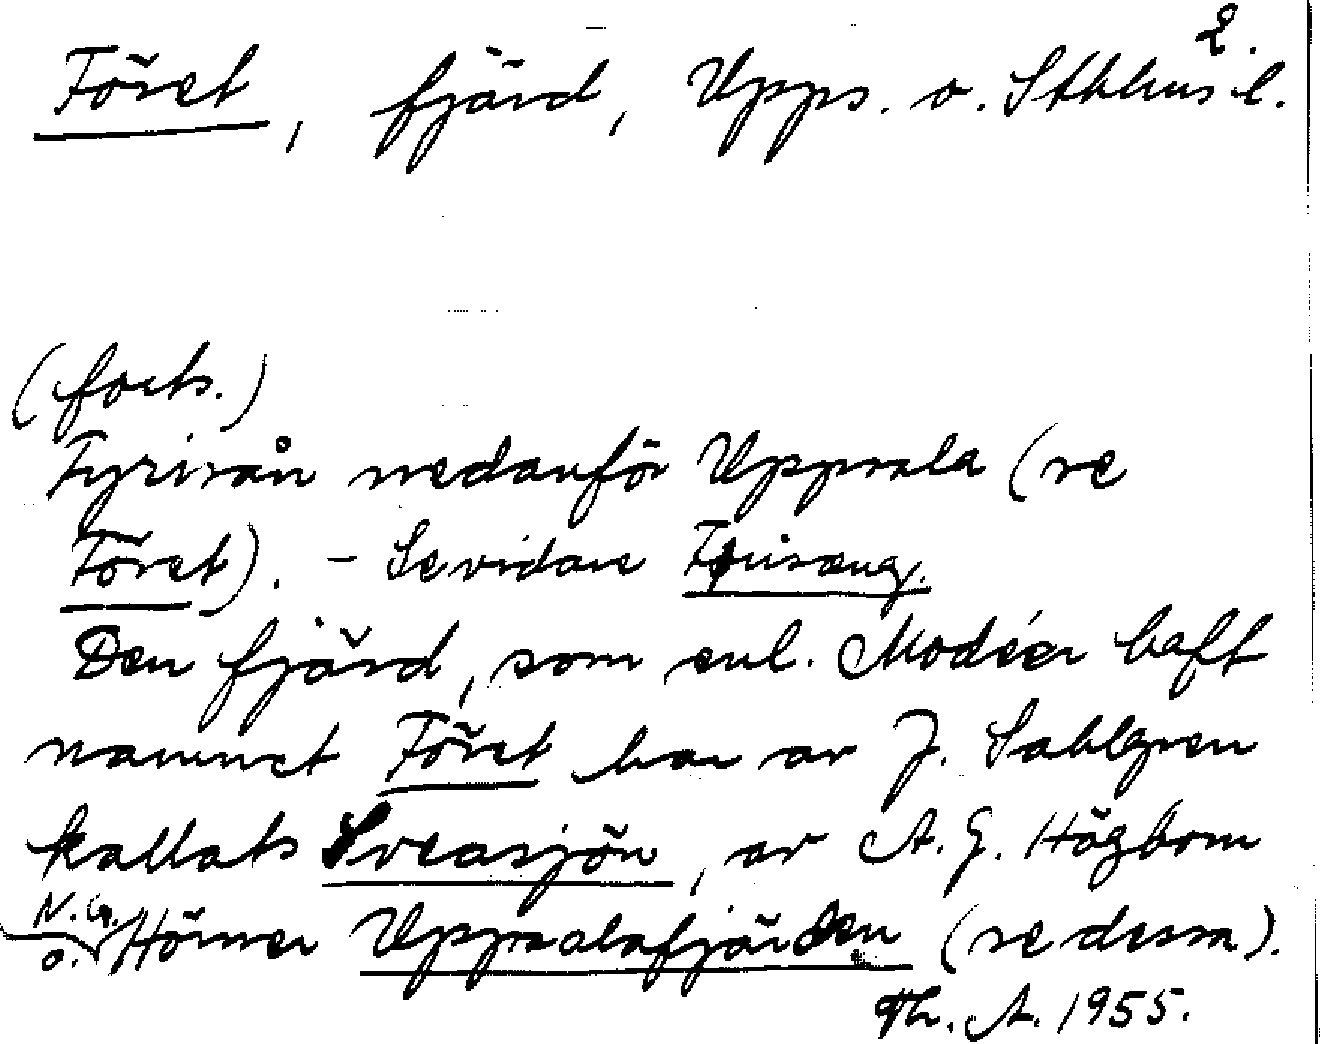 2.
Föret, fjärd, Upps. o. Sthlms l.
(forts.)
Fyrisån nedanför Uppsala (se
Föret). - Se vidare Fyrisæng.
Den fjärd, som enl. Modéer haft
namnet Föret har av J. Sahlgren
kallats Sveasjön, av A. G. Högbom
o. N. G. Hörner Uppsalafjärden (se dessa).
Th. A. 1955.